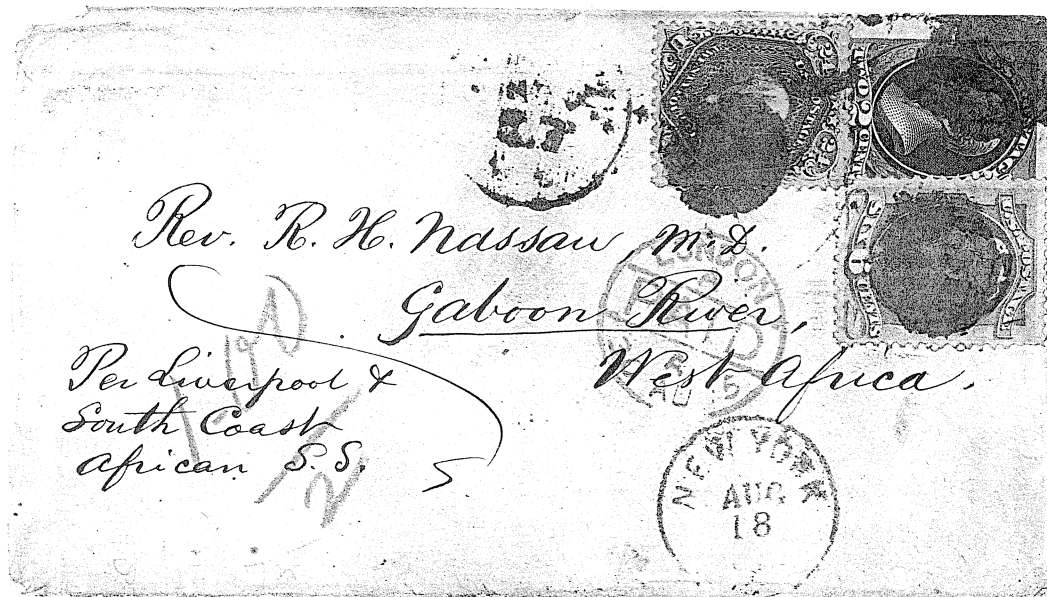 Rev. R. H. Nassau, M.D.
Gaboon River,
West Africa.
Per Liverpool &
South Coast
African S.S.
LONDON
PAID
AU
NEW YORK
AUG
18